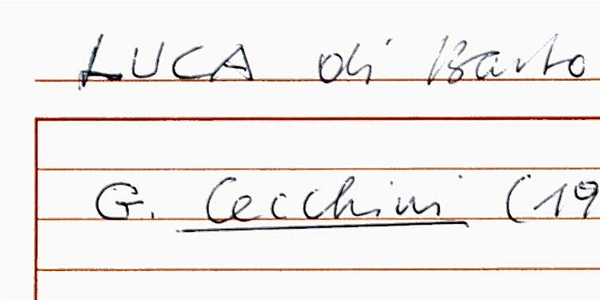 LUCA di Barto
G. Cecchini (19